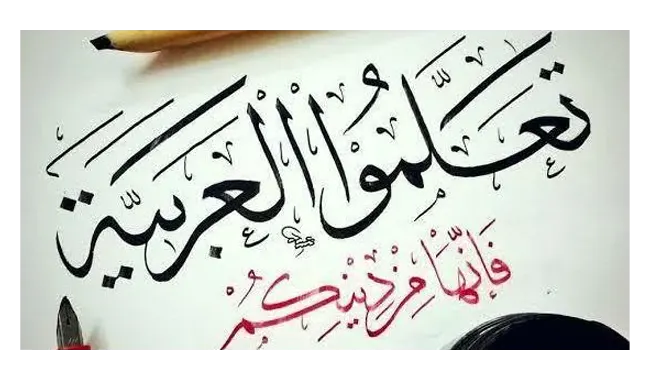 تعلموا العربية
فإنها من دينكم